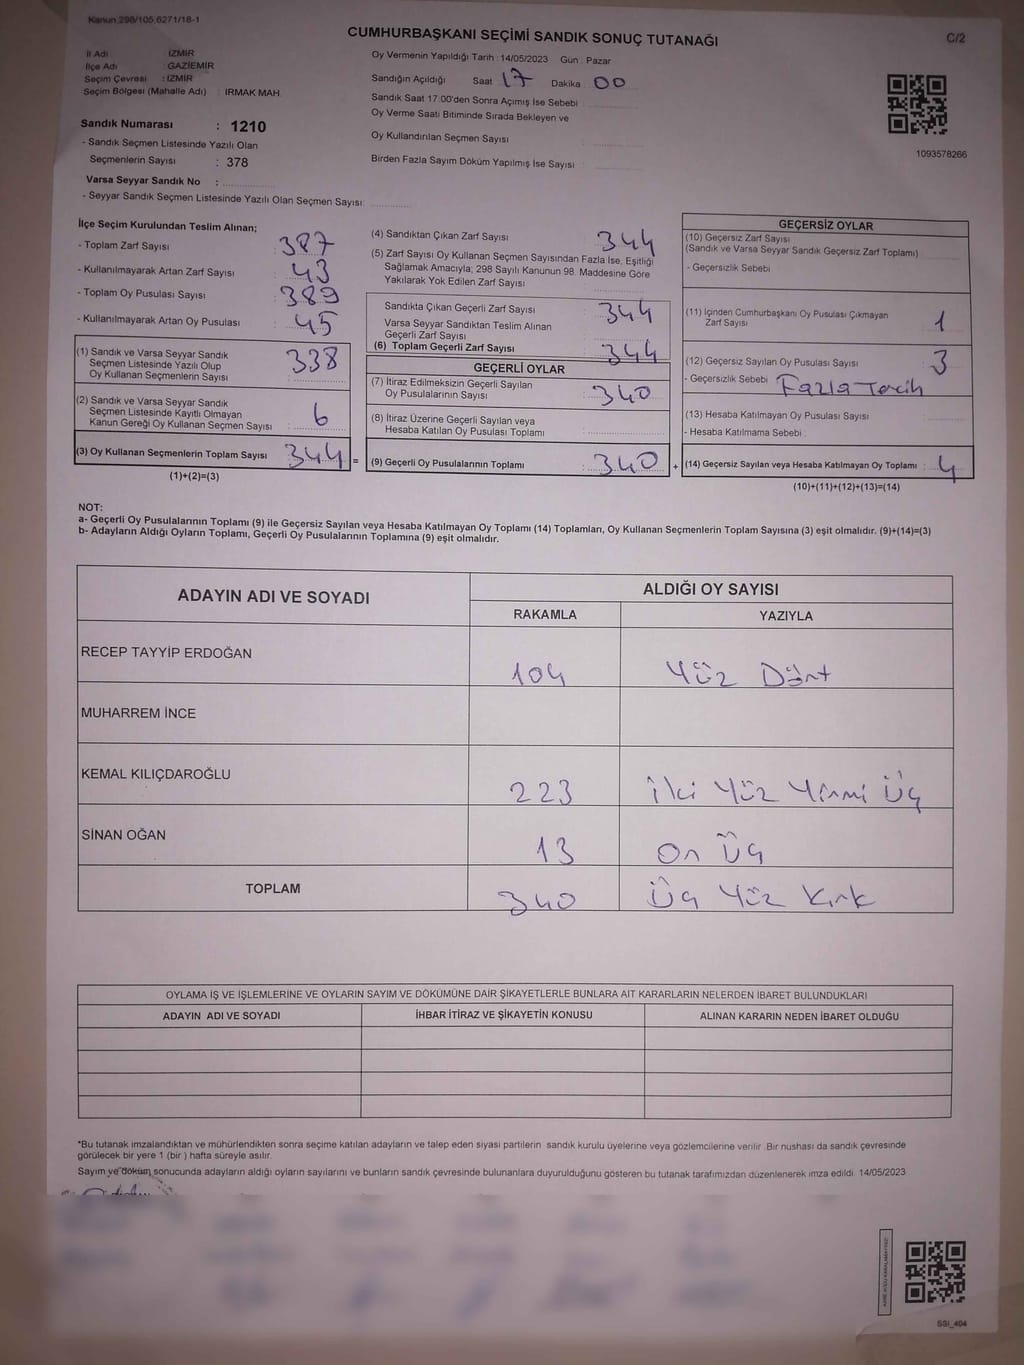 Kanun.298/105,6271/18-1
CUMHURBAŞKANI SEÇİMİ SANDIK SONUÇ TUTANAĞI
C/2
İl Adı : İZMİR
İlçe Adı : GAZİEMİR
Seçim Çevresi : İZMİR
Seçim Bölgesi (Mahalle Adı) : IRMAK MAH.
Oy Vermenin Yapıldığı Tarih : 14/05/2023 Gün : Pazar
Sandığın Açıldığı Saat 17 Dakika 00
Sandık Saat 17:00'den Sonra Açımış İse Sebebi
Oy Verme Saati Bitiminde Sırada Bekleyen ve
Oy Kullandırılan Seçmen Sayısı
Birden Fazla Sayım Döküm Yapılmış İse Sayısı
1093578266
Sandık Numarası : 1210
- Sandık Seçmen Listesinde Yazılı Olan
Seçmenlerin Sayısı : 378
Varsa Seyyar Sandık No :
- Seyyar Sandık Seçmen Listesinde Yazılı Olan Seçmen Sayısı:
İlçe Seçim Kurulundan Teslim Alınan;
- Toplam Zarf Sayısı : 387
- Kullanılmayarak Artan Zarf Sayısı : 43
- Toplam Oy Pusulası Sayısı : 389
- Kullanılmayarak Artan Oy Pusulası : 45
(1) Sandık ve Varsa Seyyar Sandık
Seçmen Listesinde Yazılı Olup
Oy Kullanan Seçmenlerin Sayısı : 338
(2) Sandık ve Varsa Seyyar Sandık
Seçmen Listesinde Kayıtlı Olmayan
Kanun Gereği Oy Kullanan Seçmen Sayısı : 6
(3) Oy Kullanan Seçmenlerin Toplam Sayısı : 344 =
(1)+(2)=(3)
(4) Sandıktan Çıkan Zarf Sayısı : 344
(5) Zarf Sayısı Oy Kullanan Seçmen Sayısından Fazla İse, Eşitliği
Sağlamak Amacıyla; 298 Sayılı Kanunun 98. Maddesine Göre
Yakılarak Yok Edilen Zarf Sayısı :
Sandıkta Çıkan Geçerli Zarf Sayısı : 344
Varsa Seyyar Sandıktan Teslim Alınan
Geçerli Zarf Sayısı :
(6) Toplam Geçerli Zarf Sayısı : 344
GEÇERLİ OYLAR
(7) İtiraz Edilmeksizin Geçerli Sayılan
Oy Pusulalarının Sayısı : 340
(8) İtiraz Üzerine Geçerli Sayılan veya
Hesaba Katılan Oy Pusulası Toplamı :
(9) Geçerli Oy Pusulalarının Toplamı : 340 +
GEÇERSİZ OYLAR
(10) Geçersiz Zarf Sayısı
(Sandık ve Varsa Seyyar Sandık Geçersiz Zarf Toplamı)
- Geçersizlik Sebebi
(11) İçinden Cumhurbaşkanı Oy Pusulası Çıkmayan
Zarf Sayısı : 1
(12) Geçersiz Sayılan Oy Pusulası Sayısı : 3
- Geçersizlik Sebebi Fazla Tercih
(13) Hesaba Katılmayan Oy Pusulası Sayısı :
- Hesaba Katılmama Sebebi :
(14) Geçersiz Sayılan veya Hesaba Katılmayan Oy Toplamı : 4
(10)+(11)+(12)+(13)=(14)
NOT:
a- Geçerli Oy Pusulalarının Toplamı (9) ile Geçersiz Sayılan veya Hesaba Katılmayan Oy Toplamı (14) Toplamları, Oy Kullanan Seçmenlerin Toplam Sayısına (3) eşit olmalıdır. (9)+(14)=(3)
b- Adayların Aldığı Oyların Toplamı, Geçerli Oy Pusulalarının Toplamına (9) eşit olmalıdır.
ADAYIN ADI VE SOYADI
ALDIĞI OY SAYISI
RAKAMLA YAZIYLA
RECEP TAYYİP ERDOĞAN 104 Yüz Dört
MUHARREM İNCE
KEMAL KILIÇDAROĞLU 223 İki Yüz Yirmi Üç
SİNAN OĞAN 13 On Üç
TOPLAM 340 Üç Yüz Kırk
OYLAMA İŞ VE İŞLEMLERİNE VE OYLARIN SAYIM VE DÖKÜMÜNE DAİR ŞİKAYETLERLE BUNLARA AİT KARARLARIN NELERDEN İBARET BULUNDUKLARI
ADAYIN ADI VE SOYADI İHBAR İTİRAZ VE ŞİKAYETİN KONUSU ALINAN KARARIN NEDEN İBARET OLDUĞU
*Bu tutanak imzalandıktan ve mühürlendikten sonra seçime katılan adayların ve talep eden siyasi partilerin sandık kurulu üyelerine veya gözlemcilerine verilir. Bir nushası da sandık çevresinde
görülecek bir yere 1 (bir ) hafta süreyle asılır.
Sayım ve döküm sonucunda adayların aldığı oyların sayılarını ve bunların sandık çevresinde bulunanlara duyurulduğunu gösteren bu tutanak tarafımızdan düzenlenerek imza edildi. 14/05/2023
SSI_404